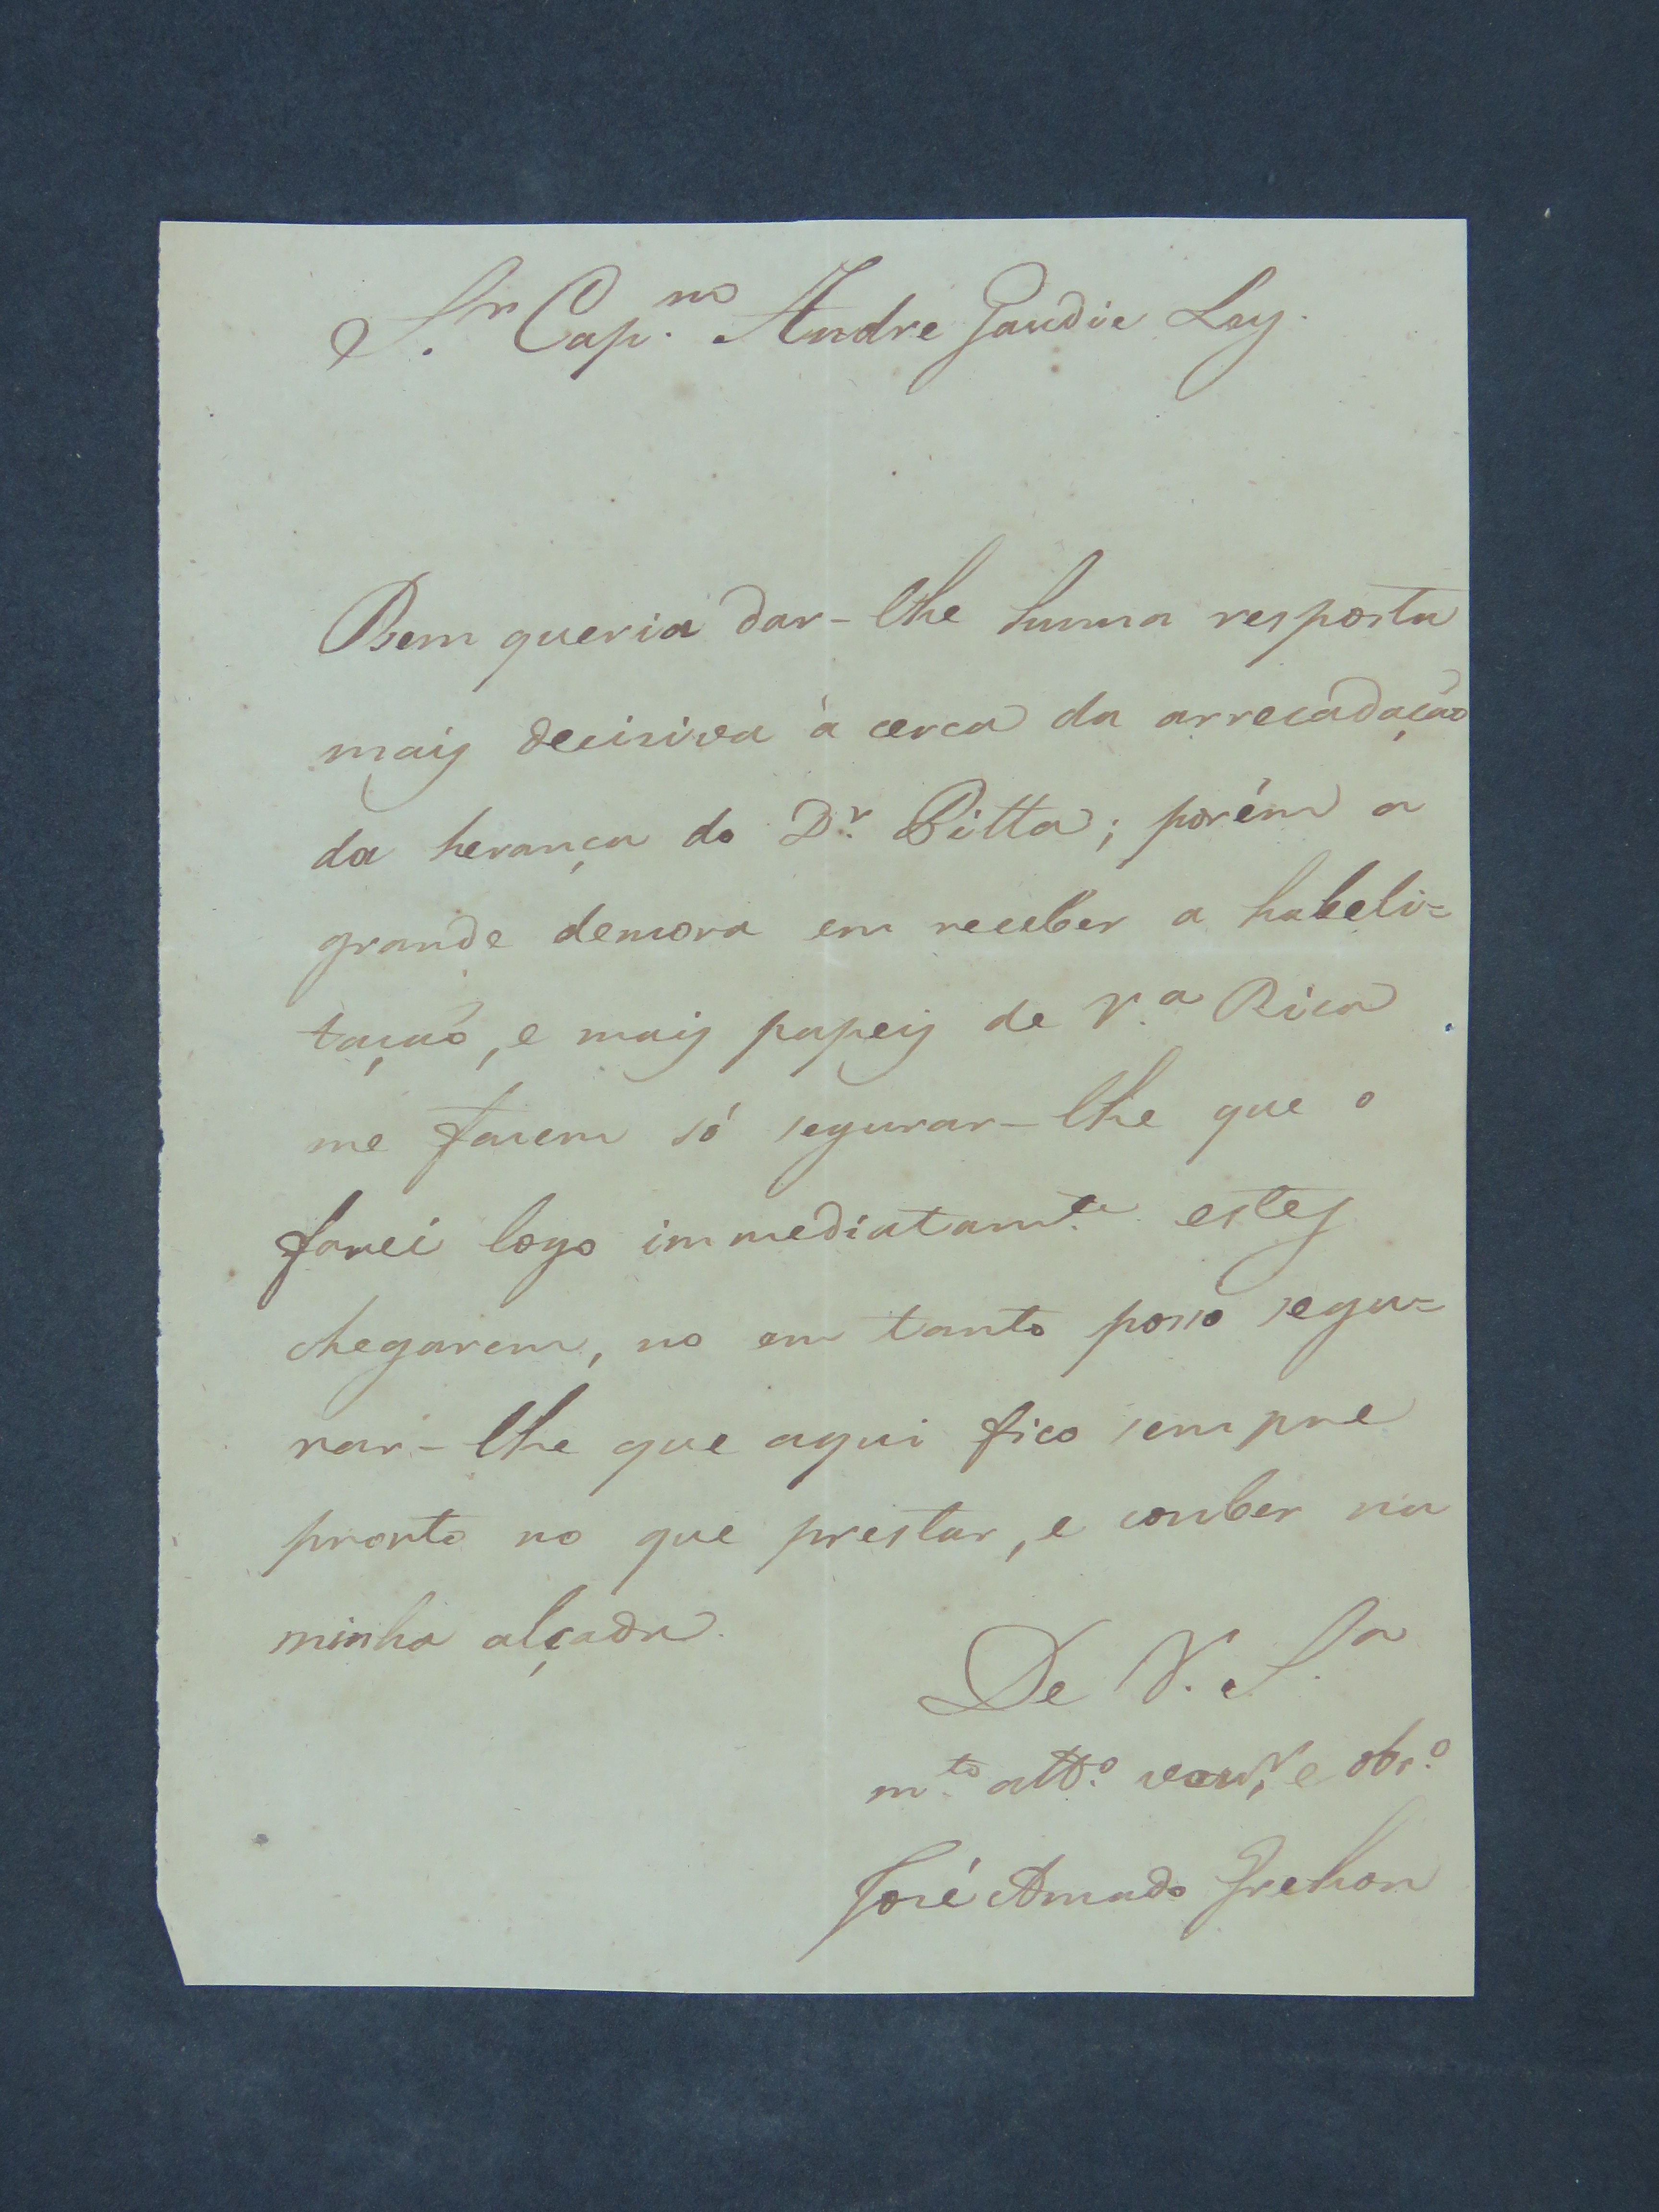 Sr. Cap.mo Andre Gaudie Ley.
Bem queria dar-lhe huma resposta
mais decisiva à cerca da arrecadação
da herança do Dr. Pitta; porém a
grande demora em receber a habeli=
tação, e mais papeis de V.a Rica
me fazem só segurar-lhe que o
farei logo immediatam.te estes
chegarem, no em tanto posso segu=
rar-lhe que aqui fico sempre
pronto no que prestar, e couber na
minha alçada.
De V. S.a
m.to att.o e obr.o
José Amado Grehon